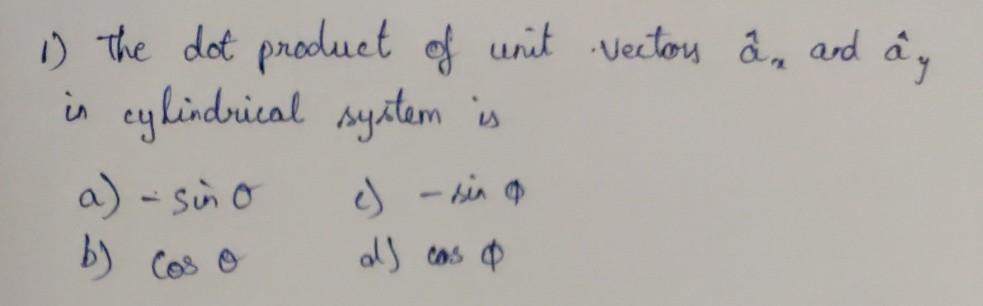 1) The dot product of unit vectors âₓ and â_y
in cylindrical system is
a) - sin θ c) - sin φ
b) cos θ d) cos φ